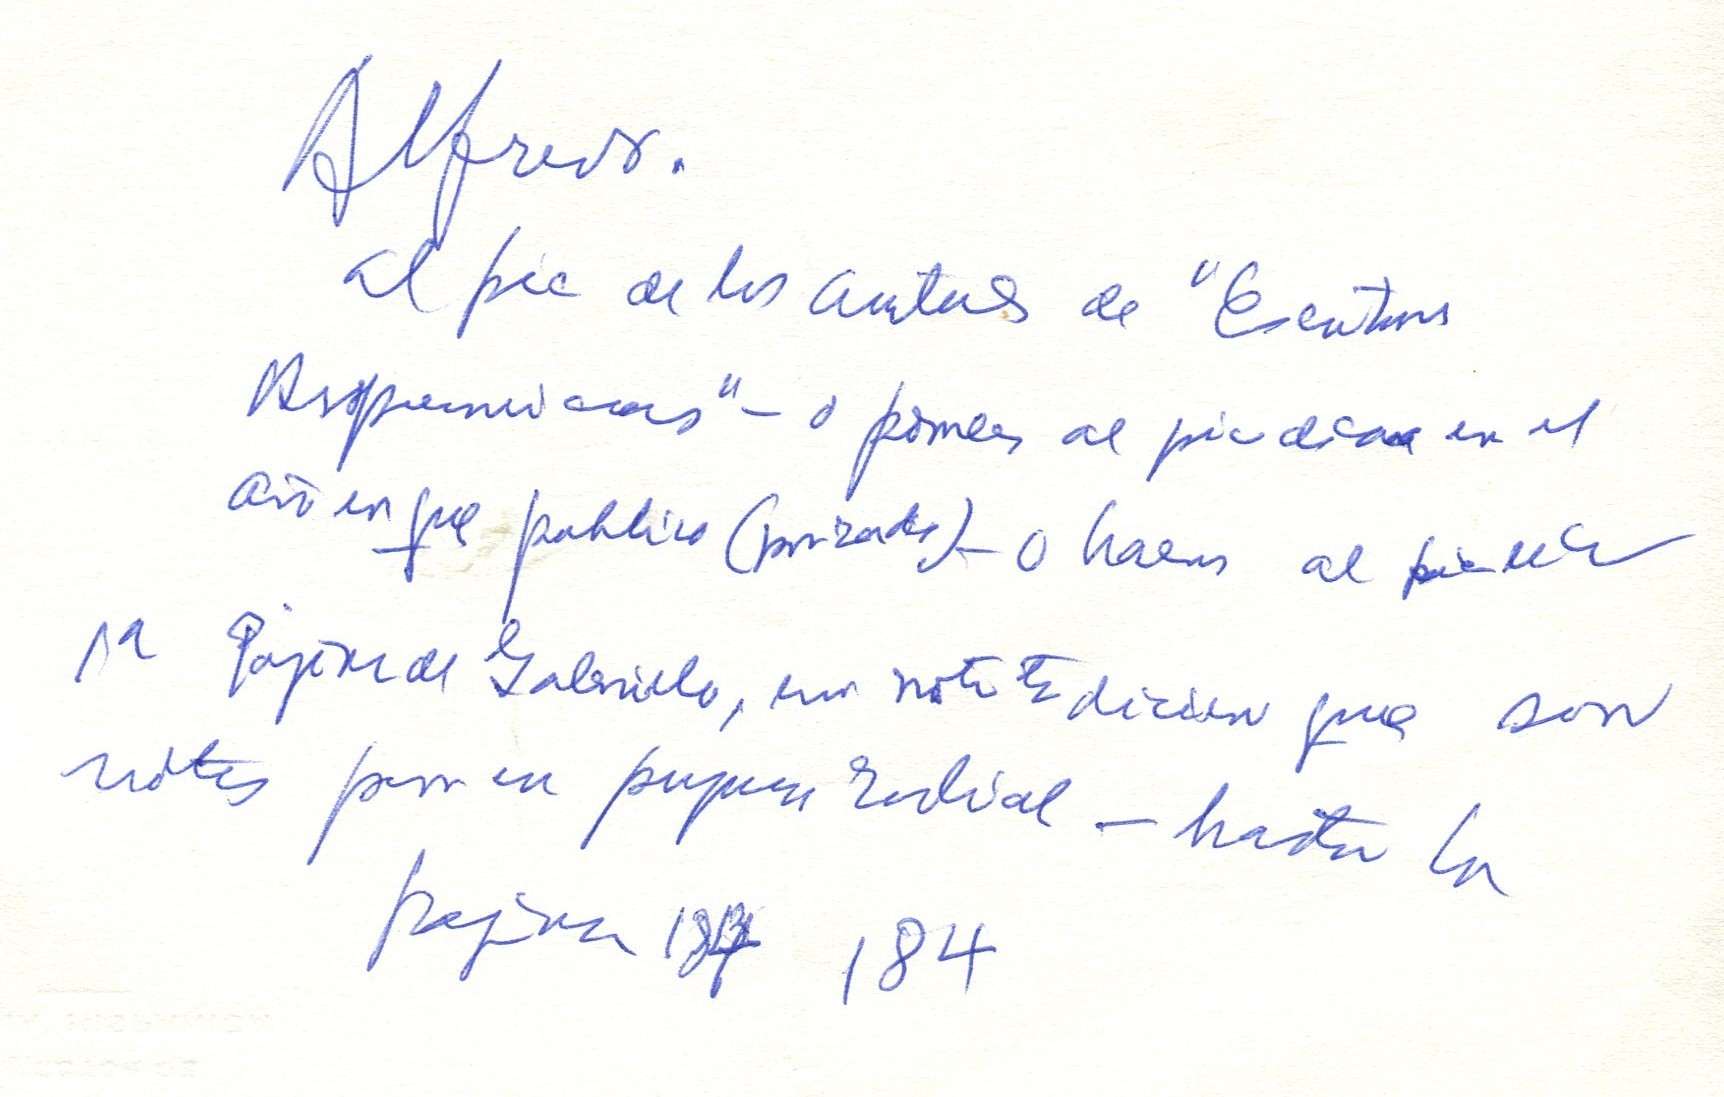 Alfredo.
al pie de los autores de "Escritoras
Hispanoamericanas" – o ponemos al pie de cada en el
año en que publico – o hacemos al pie de la
1ª Página de Gabriela, una nota diciendo que son
notas para un programa radial – hasta la
página 184